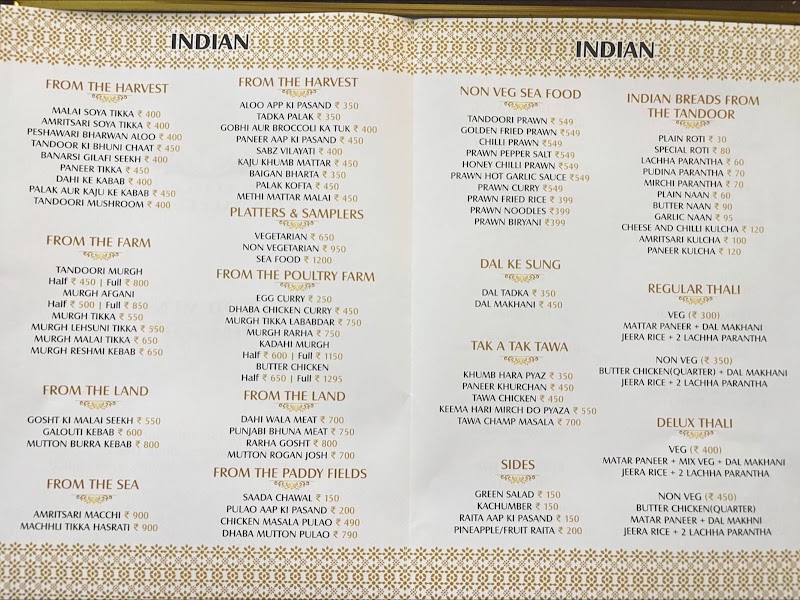 INDIAN
FROM THE HARVEST
MALAI SOYA TIKKA ₹ 400
AMRITSARI SOYA TIKKA ₹ 400
PESHAWARI BHARWAN ALOO ₹ 400
TANDOOR KI BHUNI CHAAT ₹ 450
BANARSI GILAFI SEEKH ₹ 400
PANEER TIKKA ₹ 450
DAHI KE KABAB ₹ 400
PALAK AUR KAJU KE KABAB ₹ 450
TANDOORI MUSHROOM ₹ 400
FROM THE FARM
TANDOORI MURGH
Half ₹ 450 | Full ₹ 800
MURGH AFGANI
Half ₹ 500 | Full ₹ 850
MURGH TIKKA ₹ 550
MURGH LEHSUNI TIKKA ₹ 550
MURGH MALAI TIKKA ₹ 650
MURGH RESHMI KEBAB ₹ 650
FROM THE LAND
GOSHT KI MALAI SEEKH ₹ 550
GALOUTI KEBAB ₹ 600
MUTTON BURRA KEBAB ₹ 800
FROM THE SEA
AMRITSARI MACCHI ₹ 900
MACHHLI TIKKA HASRATI ₹ 900
FROM THE HARVEST
ALOO APP KI PASAND ₹ 350
TADKA PALAK ₹ 350
GOBHI AUR BROCCOLI KA TUK ₹ 400
PANEER AAP KI PASAND ₹ 450
SABZ VILAYATI ₹ 400
KAJU KHUMB MATTAR ₹ 450
BAIGAN BHARTA ₹ 350
PALAK KOFTA ₹ 450
METHI MATTAR MALAI ₹ 450
PLATTERS & SAMPLERS
VEGETARIAN ₹ 650
NON VEGETARIAN ₹ 950
SEA FOOD ₹ 1200
FROM THE POULTRY FARM
EGG CURRY ₹ 250
DHABA CHICKEN CURRY ₹ 450
MURGH TIKKA LABABDAR ₹ 750
MURGH RARHA ₹ 750
KADAHI MURGH
Half ₹ 600 | Full ₹ 1150
BUTTER CHICKEN
Half ₹ 650 | Full ₹ 1295
FROM THE LAND
DAHI WALA MEAT ₹ 700
PUNJABI BHUNA MEAT ₹ 750
RARHA GOSHT ₹ 800
MUTTON ROGAN JOSH ₹ 700
FROM THE PADDY FIELDS
SAADA CHAWAL ₹ 150
PULAO AAP KI PASAND ₹ 200
CHICKEN MASALA PULAO ₹ 490
DHABA MUTTON PULAO ₹ 790
INDIAN
NON VEG SEA FOOD
TANDOORI PRAWN ₹549
GOLDEN FRIED PRAWN ₹549
CHILLI PRAWN ₹549
PRAWN PEPPER SALT ₹549
HONEY CHILLI PRAWN ₹549
PRAWN HOT GARLIC SAUCE ₹549
PRAWN CURRY ₹549
PRAWN FRIED RICE ₹ 399
PRAWN NOODLES ₹399
PRAWN BIRYANI ₹399
DAL KE SUNG
DAL TADKA ₹ 350
DAL MAKHANI ₹ 450
TAK A TAK TAWA
KHUMB HARA PYAZ ₹ 350
PANEER KHURCHAN ₹ 450
TAWA CHICKEN ₹ 450
KEEMA HARI MIRCH DO PYAZA ₹ 550
TAWA CHAMP MASALA ₹ 700
SIDES
GREEN SALAD ₹ 150
KACHUMBER ₹ 150
RAITA AAP KI PASAND ₹ 150
PINEAPPLE/FRUIT RAITA ₹ 200
INDIAN BREADS FROM
THE TANDOOR
PLAIN ROTI ₹ 30
SPECIAL ROTI ₹ 80
LACHHA PARANTHA ₹ 60
PUDINA PARANTHA ₹ 70
MIRCHI PARANTHA ₹ 70
PLAIN NAAN ₹ 60
BUTTER NAAN ₹ 90
GARLIC NAAN ₹ 95
CHEESE AND CHILLI KULCHA ₹ 120
AMRITSARI KULCHA ₹ 100
PANEER KULCHA ₹ 120
REGULAR THALI
VEG (₹ 300)
MATTAR PANEER + DAL MAKHANI
JEERA RICE + 2 LACHHA PARANTHA
NON VEG (₹ 350)
BUTTER CHICKEN(QUARTER) + DAL MAKHANI
JEERA RICE + 2 LACHHA PARANTHA
DELUX THALI
VEG (₹ 400)
MATAR PANEER + MIX VEG + DAL MAKHANI
JEERA RICE + 2 LACHHA PARANTHA
NON VEG (₹ 450)
BUTTER CHICKEN(QUARTER)
MATAR PANEER + DAL MAKHNI
JEERA RICE + 2 LACHHA PARANTHA